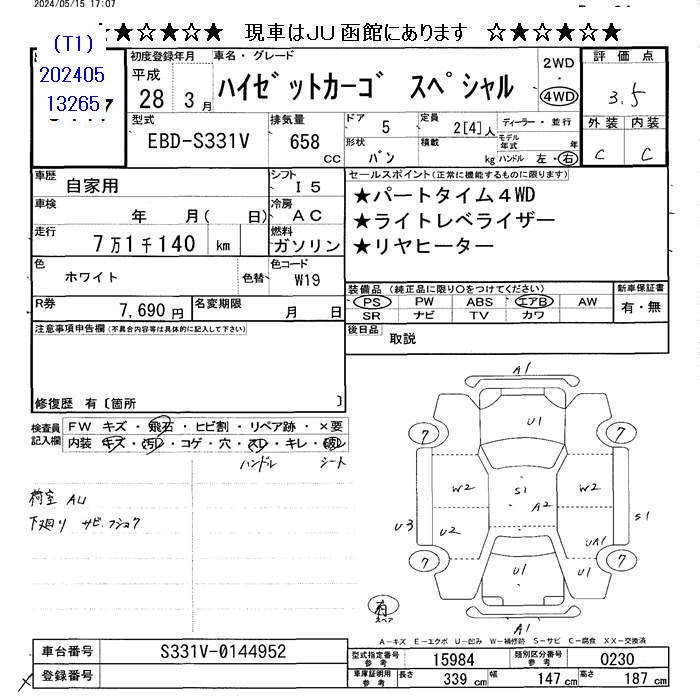 2024/05/15 17:07
★☆★☆★☆ 現車はJU函館にあります ☆★☆★☆★
(T1)
202405
13265
初度登録年月
平成
28 3月
車名・グレード
ハイゼットカーゴ スペシャル
2WD
・
4WD
評価点
3.5
外装 内装
C C
型式
EBD-S331V
排気量
658
CC
ドア 5
定員 2[4]人
ディーラー・並行
形状
バン
積載
kg
モデル年式 年
ハンドル 左・右
車歴
自家用
シフト
I5
車検
年 月( 日)
冷房
AC
走行
7万1千140 km
燃料
ガソリン
色
ホワイト
色替
色コード
W19
R券
7,690円
名変期限
月 日
セールスポイント(正常に機能するものに限ります)
★パートタイム4WD
★ライトレベライザー
★リヤヒーター
装備品 (純正品に限り○をつけてください)
PS PW ABS エアB AW
SR ナビ TV カワ
新車保証書
有・無
後日品
取説
注意事項申告欄(不具合内容等は具体的に記入して下さい)
修復歴 有〔箇所 〕
検査員
記入欄
FW キズ・飛石・ヒビ割・リペア跡・×要
内装 キズ・汚レ・コゲ・穴・スレ・キレ・破レ
ハンドル シート
荷室 AU
下廻り サビ・フショク
A1
U1
7 7
W2 S1 W2
A2
U3 U2 UA1 S1
7 U1 U1 7
A1
有
スペア
A-キズ E-エクボ U-凹み W-補修跡 S-サビ C-腐食 XX-交換済
車台番号
S331V-0144952
登録番号
型式指定番号
参考
15984
類別区分番号
参考
0230
車庫証明用
参考
長さ 339 cm
幅 147 cm
高さ 187 cm